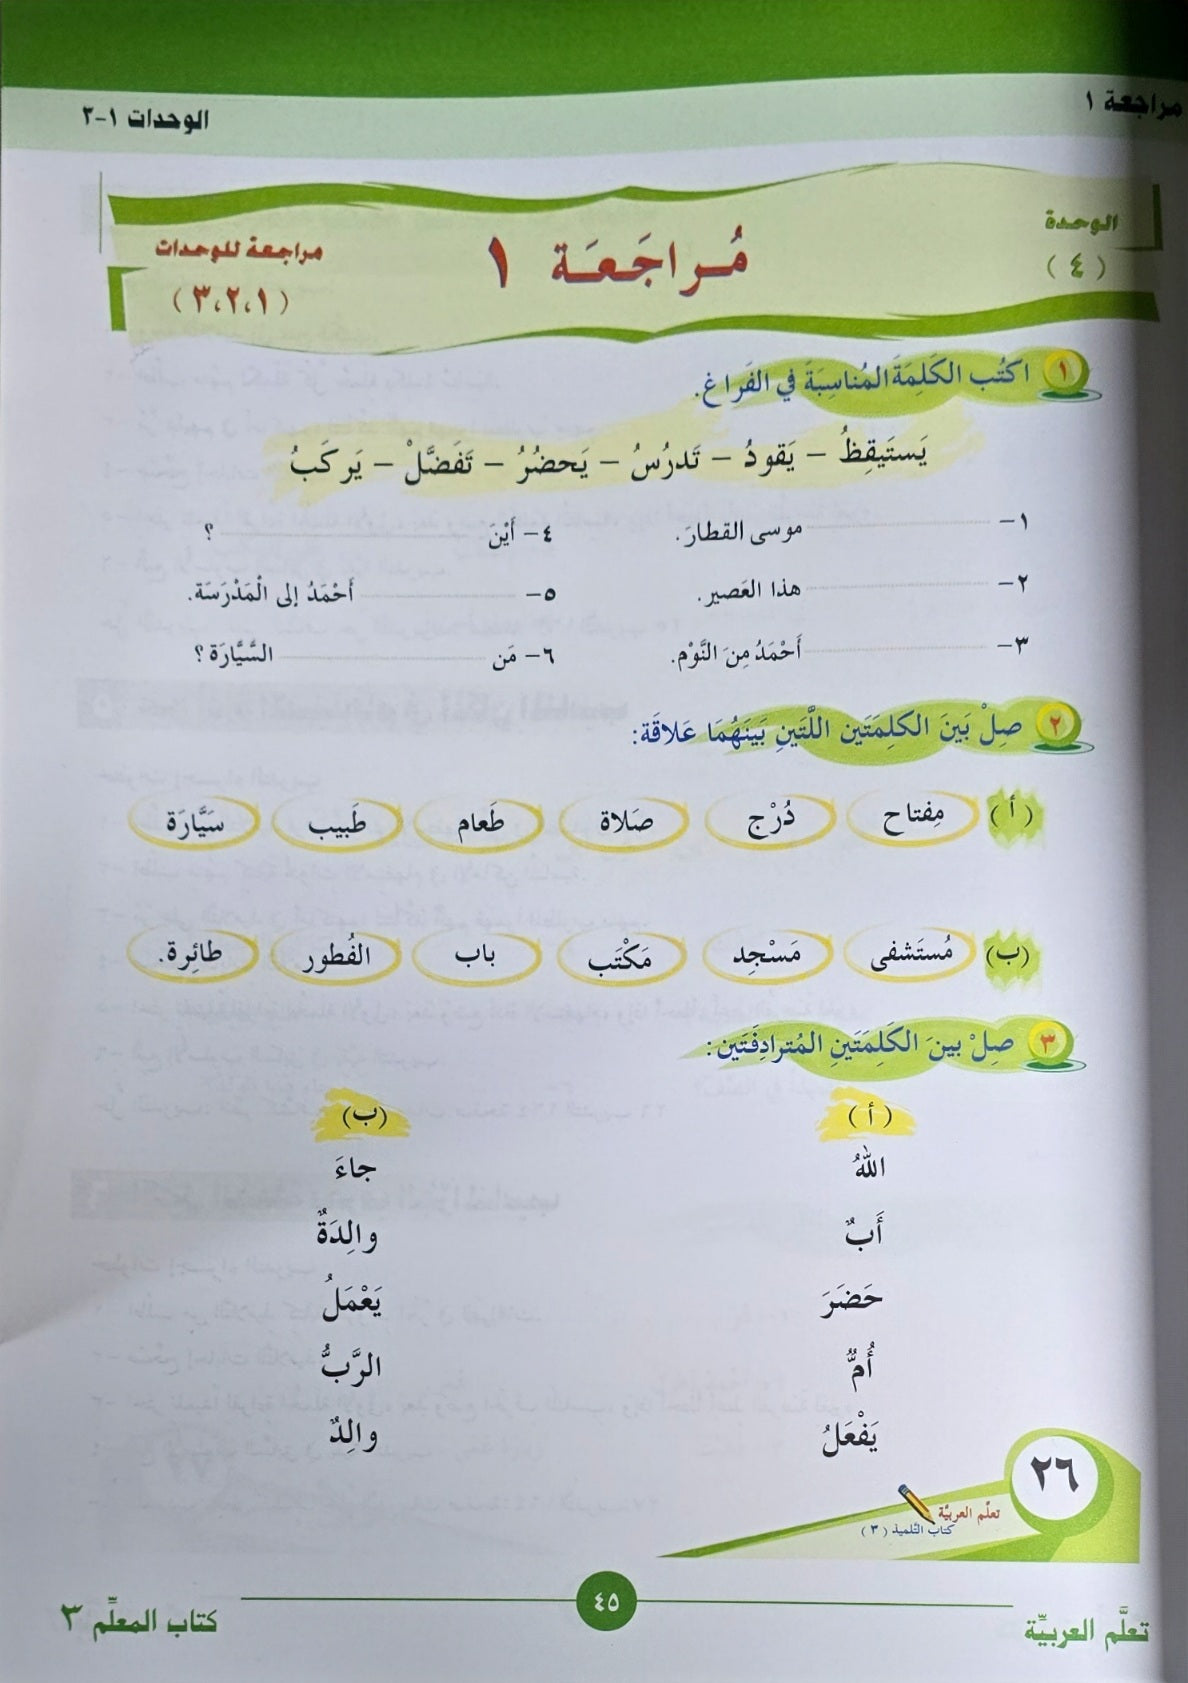 مراجعة ١
الوحدات ١-٣
الوحدة
(٤)
مُراجَعَة ١
مراجعة للوحدات
(٣،٢،١)
١ اكتُب الكَلِمَةَ المُناسِبَةَ في الفَراغ.
يَستَيقِظُ – يَقودُ – تَدرُسُ – يَحضُرُ – تَفَضَّلْ – يَركَبُ
١– موسى القطارَ.
٤– أَيْنَ ؟
٢– هذا العَصير.
٥– أَحْمَدُ إلى الْمَدْرَسَة.
٣– أَحْمَدُ مِنَ النَّوْم.
٦– مَن السَّيَّارَة؟
٢ صِلْ بَينَ الكَلِمَتَين اللَّتَينِ بَينَهُمَا عَلاقَة:
(أ) مِفتاح دُرْج صَلاة طَعام طَبيب سَيَّارَة
(ب) مُستَشفى مَسْجِد مَكْتَب باب الفُطور طائِرة.
٣ صِلْ بينَ الكَلِمَتَينِ المُترادِفَتَين:
(أ) (ب)
اللهُ جاءَ
أَبٌ والِدَةٌ
حَضَرَ يَعْمَلُ
أُمٌّ الرَّبُّ
يَفْعَلُ والِدٌ
٢٦
تعلّم العربيّة
كتاب التلميذ (٣)
تعلَّم العربيّة
٤٥
كتاب المعلِّم ٣